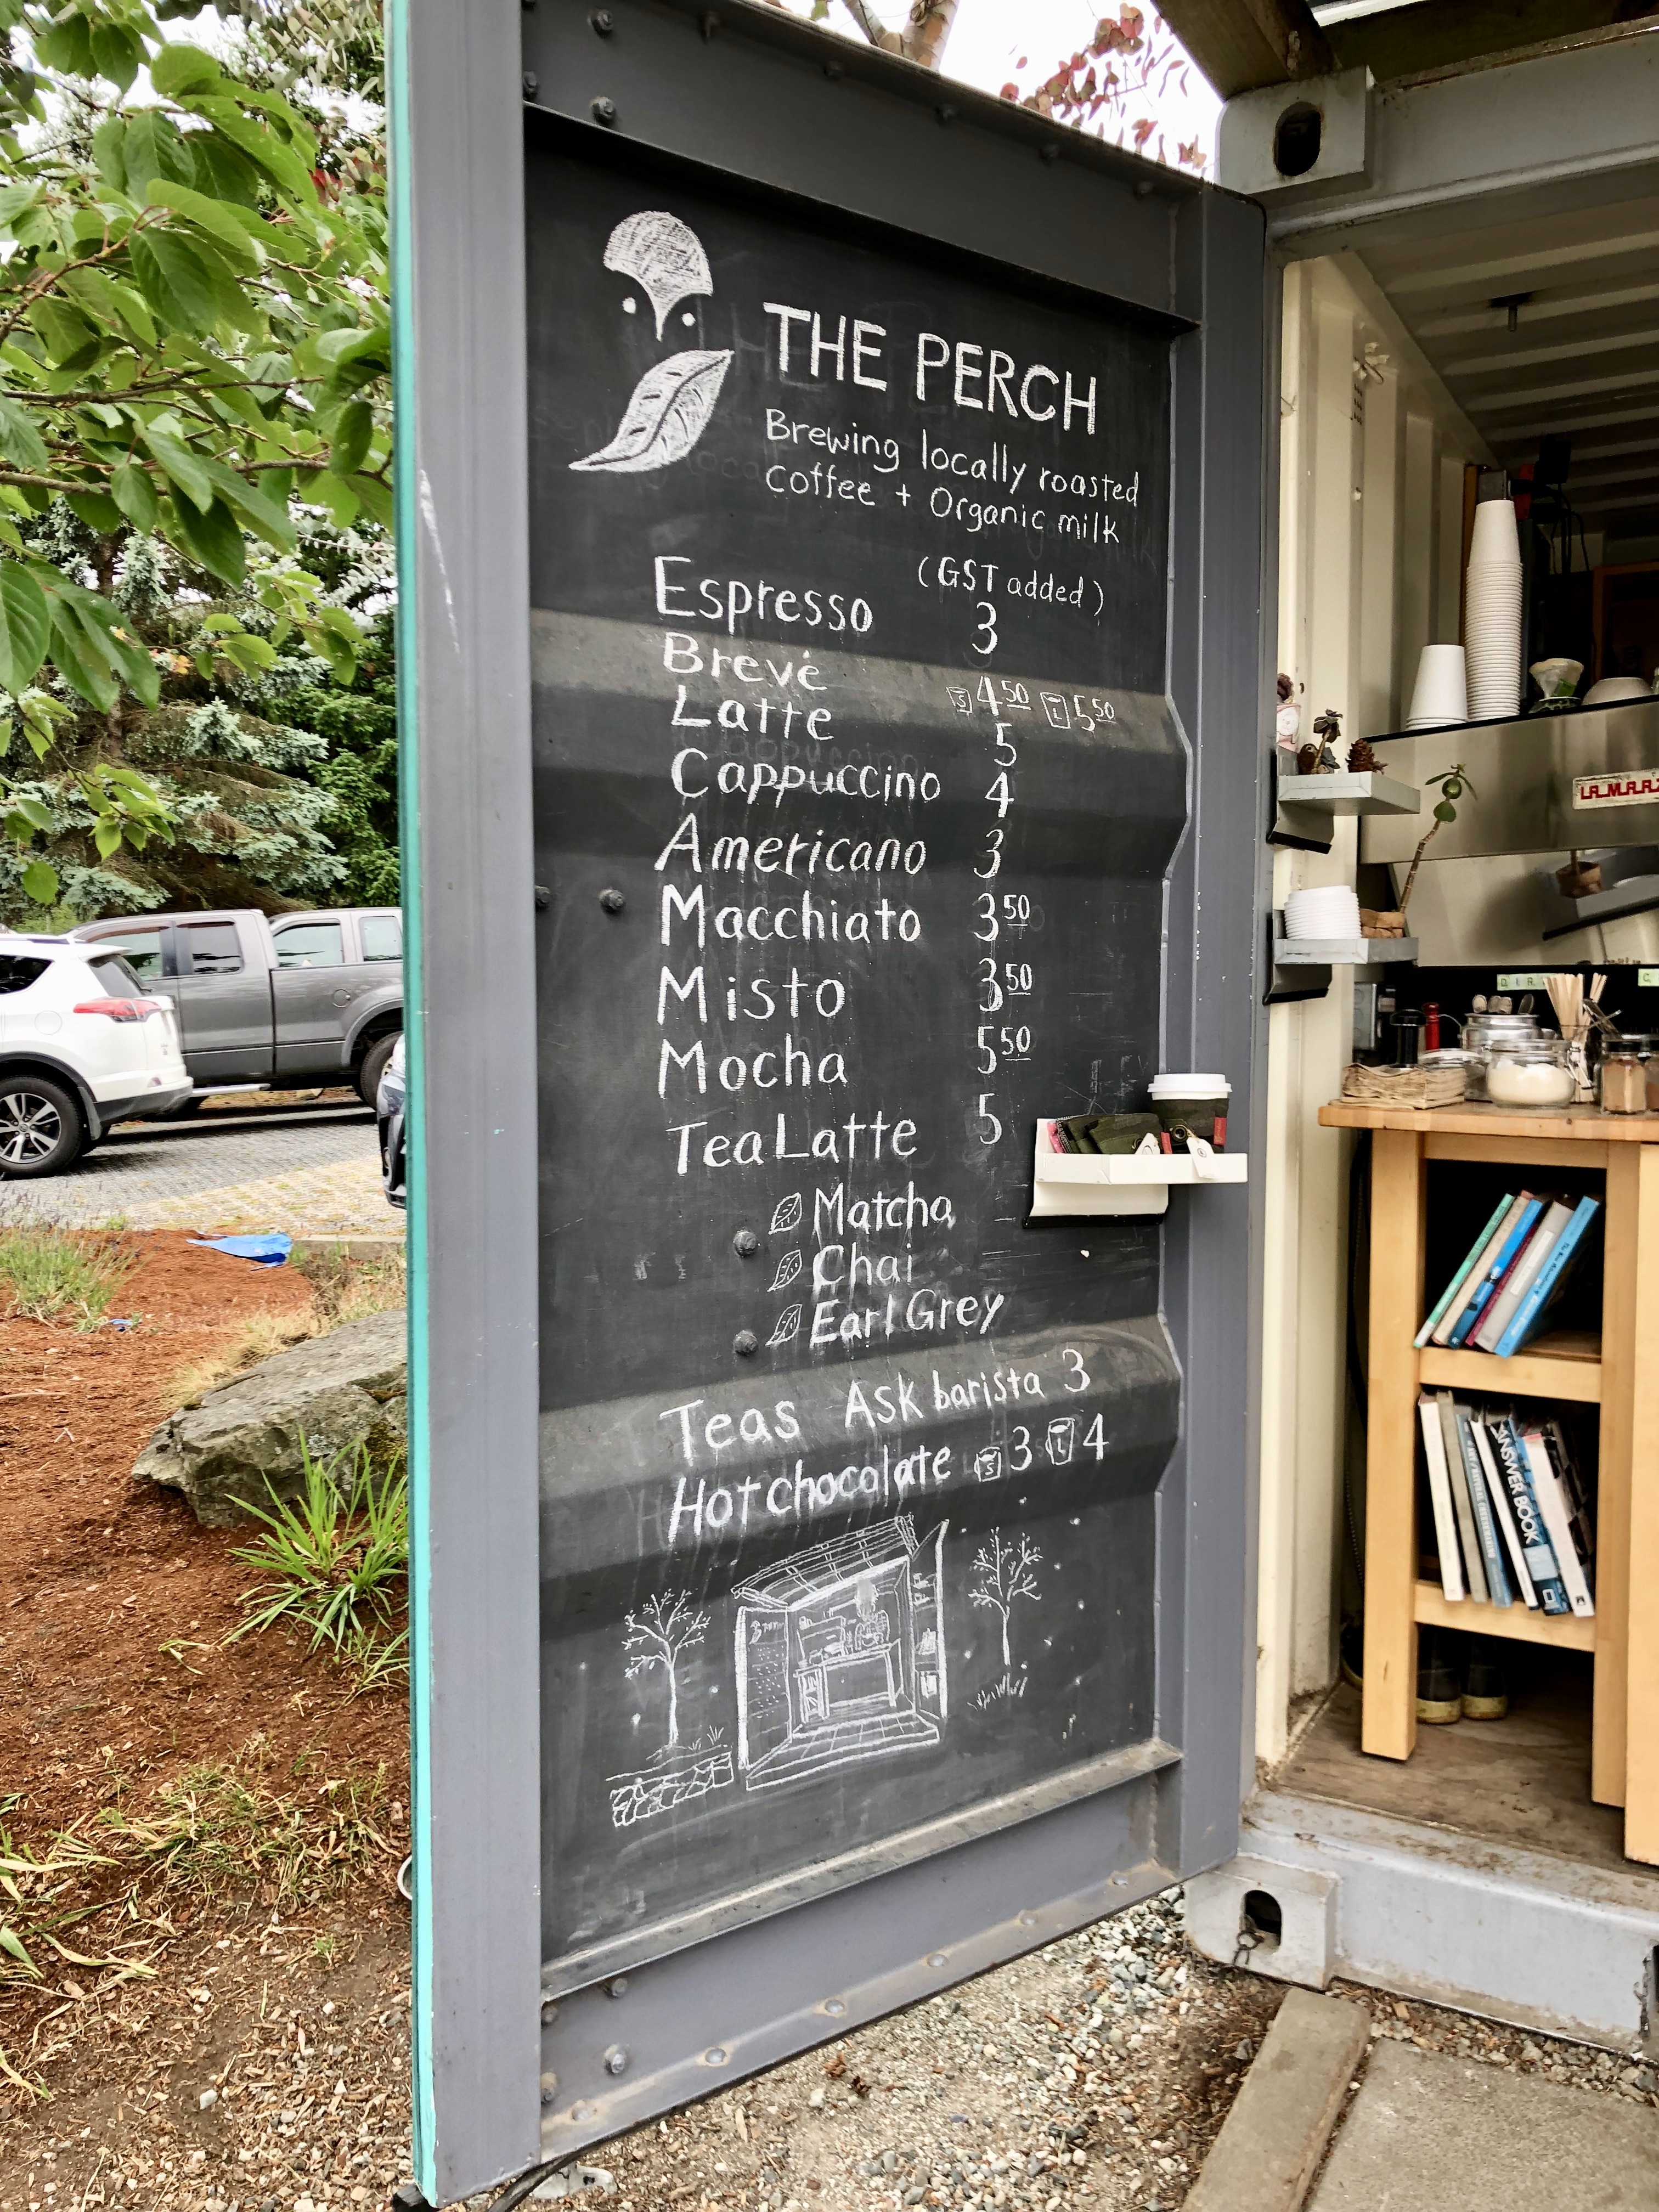 THE PERCH
Brewing locally roasted
coffee + Organic milk
(GST added)
Espresso 3
Brevé S 4 50 L 5 50
Latte 5
Cappuccino 4
Americano 3
Macchiato 3 50
Misto 3 50
Mocha 5 50
Tea Latte 5
Matcha
Chai
Earl Grey
Teas Ask barista 3
Hot chocolate S 3 L 4
ANSWER BOOK